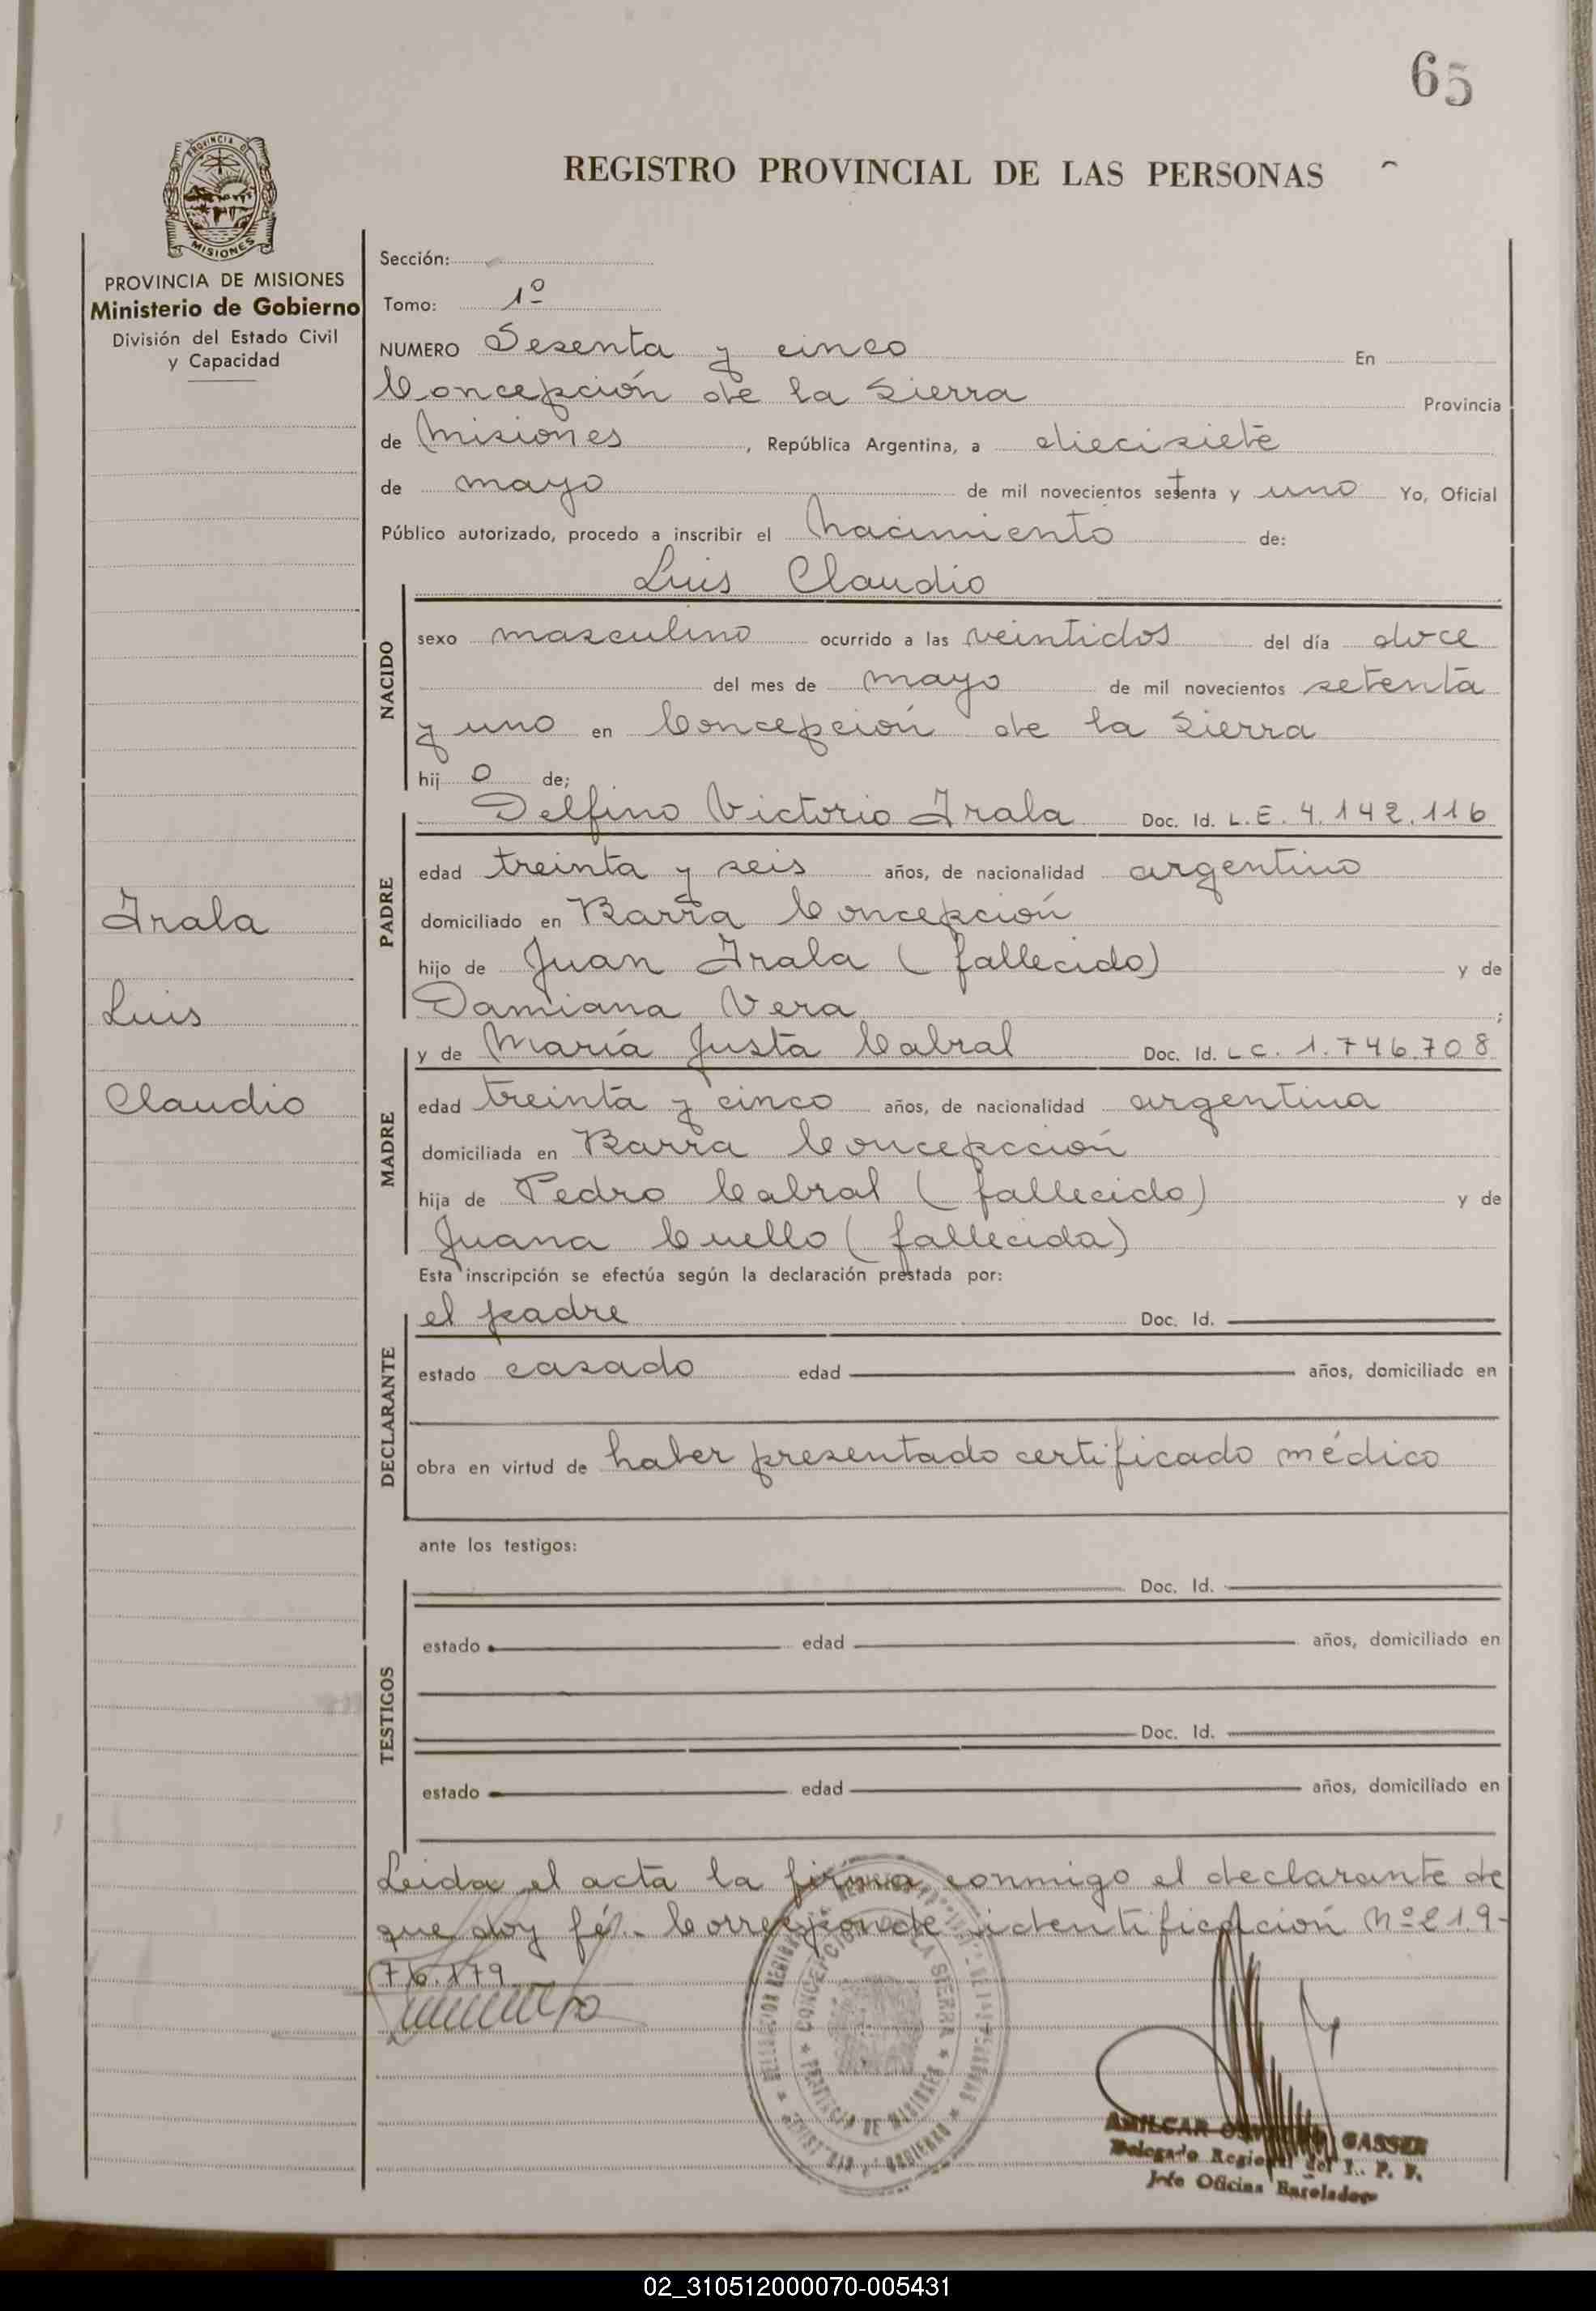 65
PROVINCIA DE
MISIONES
REGISTRO PROVINCIAL DE LAS PERSONAS
PROVINCIA DE MISIONES
Ministerio de Gobierno
División del Estado Civil
y Capacidad
Sección:
Tomo: 1º
NUMERO Sesenta y cinco En
Concepción de la Sierra Provincia
de Misiones, República Argentina, a diecisiete
de mayo de mil novecientos setenta y uno Yo, Oficial
Público autorizado, procedo a inscribir el Nacimiento de:
Luis Claudio
NACIDO
sexo masculino ocurrido a las veintidos del día doce
del mes de mayo de mil novecientos setenta
y uno en Concepción de la Sierra
hij o de;
Delfino Victorio Irala Doc. Id. L.E. 4.142.116
PADRE
edad treinta y seis años, de nacionalidad argentino
domiciliado en Barra Concepción
hijo de Juan Irala (fallecido) y de
Damiana Vera;
Irala
Luis
Claudio
y de María Justa Cabral Doc. Id. L.C. 1.746.708
MADRE
edad treinta y cinco años, de nacionalidad argentina
domiciliada en Barra Concepcción
hija de Pedro Cabral (fallecido) y de
Juana Cuello (fallecida)
Esta inscripción se efectúa según la declaración prestada por:
el padre Doc. Id.
DECLARANTE
estado casado edad años, domiciliado en
obra en virtud de haber presentado certificado médico
ante los testigos:
Doc. Id.
TESTIGOS
estado edad años, domiciliado en
Doc. Id.
estado edad años, domiciliado en
Leida el acta la firma conmigo el declarante de
que doy fé.- Corresponde identificación Nº 21.9-
76.179.
CONCEPCION DE LA SIERRA
PROVINCIA DE MISIONES
AMILCAR GASSER
Delegado Regional del I. P. V.
Jefe Oficina
02_310512000070-005431